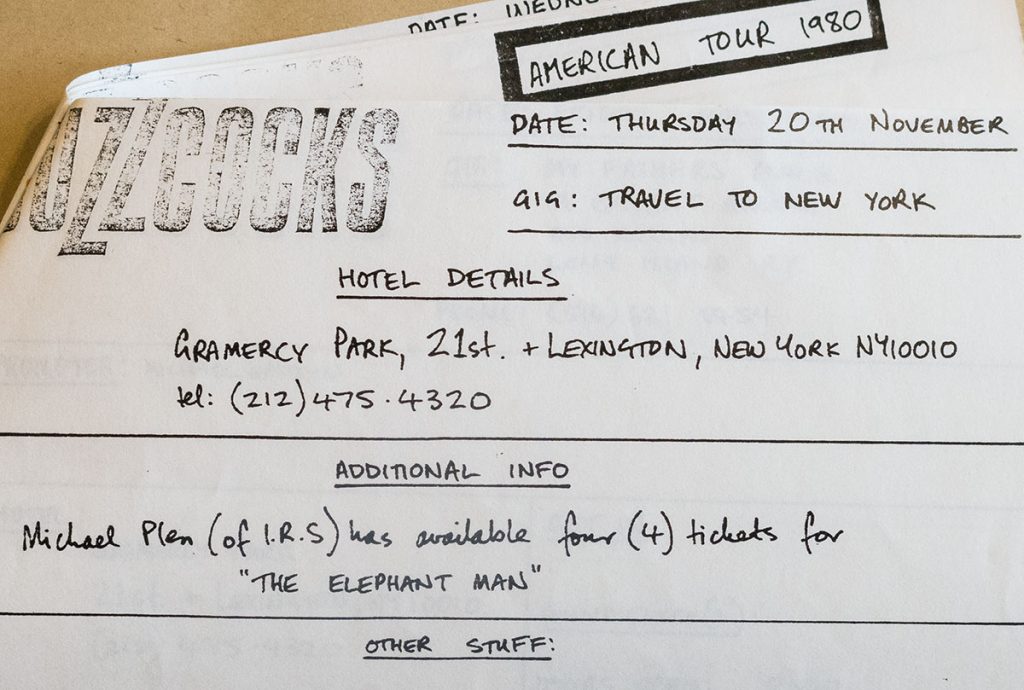 AMERICAN TOUR 1980
UZZCOCKS
DATE: THURSDAY 20TH NOVEMBER
GIG: TRAVEL TO NEW YORK
HOTEL DETAILS
GRAMERCY PARK, 21st. + LEXINGTON, NEW YORK NY10010
tel: (212) 475·4320
ADDITIONAL INFO
Michael Plen (of I.R.S) has available four (4) tickets for
"THE ELEPHANT MAN"
OTHER STUFF: